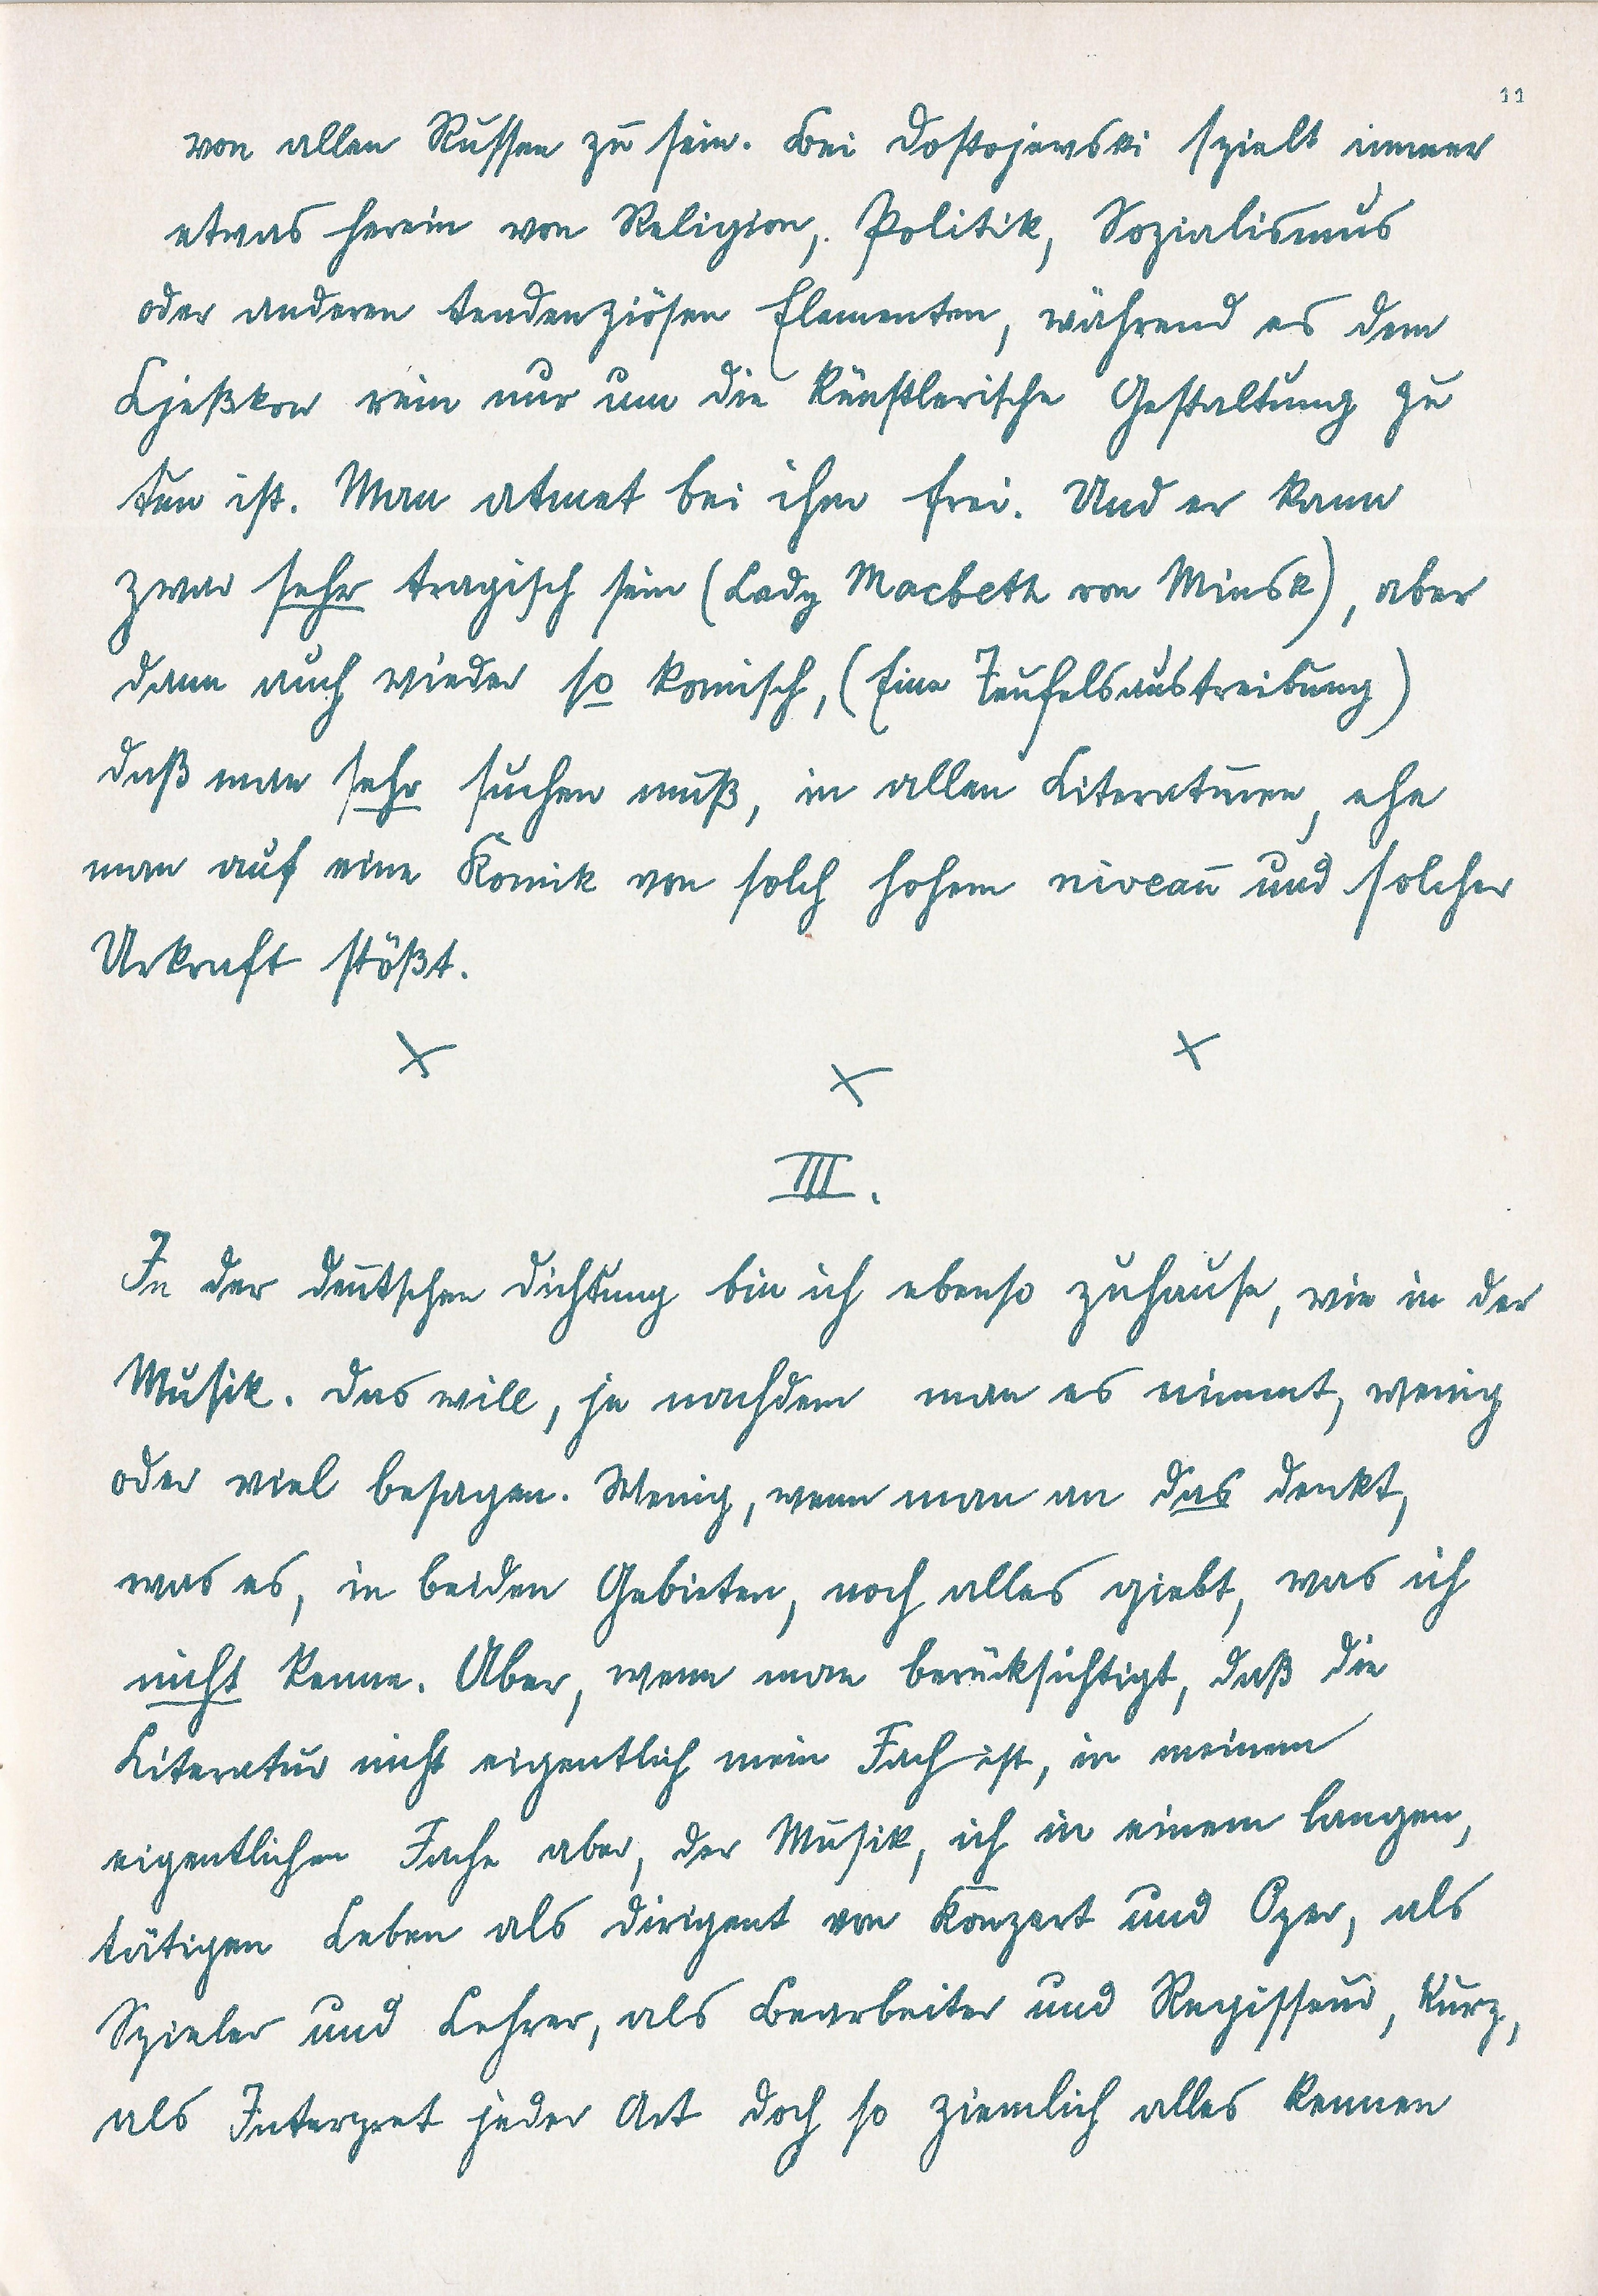 11
von allen Russen zu sein. Bei Dostojewski spielt immer
etwas herein von Religion, Politik, Sozialismus
oder anderen tendenziösen Elementen, während es dem
Ljeßkow rein nur um die künstlerische Gestaltung zu
tun ist. Man atmet bei ihm frei. Und er kann
zwar sehr tragisch sein (Lady Macbeth von Minsk), aber
dann auch wieder so komisch, (Eine Teufelsaustreibung)
daß man sehr suchen muß, in allen Literaturen, ehe
man auf eine Komik von solch hohem niveau und solcher
Urkraft stößt.
x x x
III.
In der deutschen Dichtung bin ich ebenso zuhause, wie in der
Musik. Das will, je nachdem man es nimmt, wenig
oder viel besagen. Wenig, wenn man an das denkt,
was es, in beiden Gebieten, noch alles giebt, was ich
nicht kenne. Aber, wenn man berücksichtigt, daß die
Literatur nicht eigentlich mein Fach ist, in meinem
eigentlichen Fache aber, der Musik, ich in einem langen,
tätigen Leben als Dirigent von Konzert und Oper, als
Spieler und Lehrer, als Bearbeiter und Regisseur, kurz,
als Interpret jeder Art doch so ziemlich alles kennen